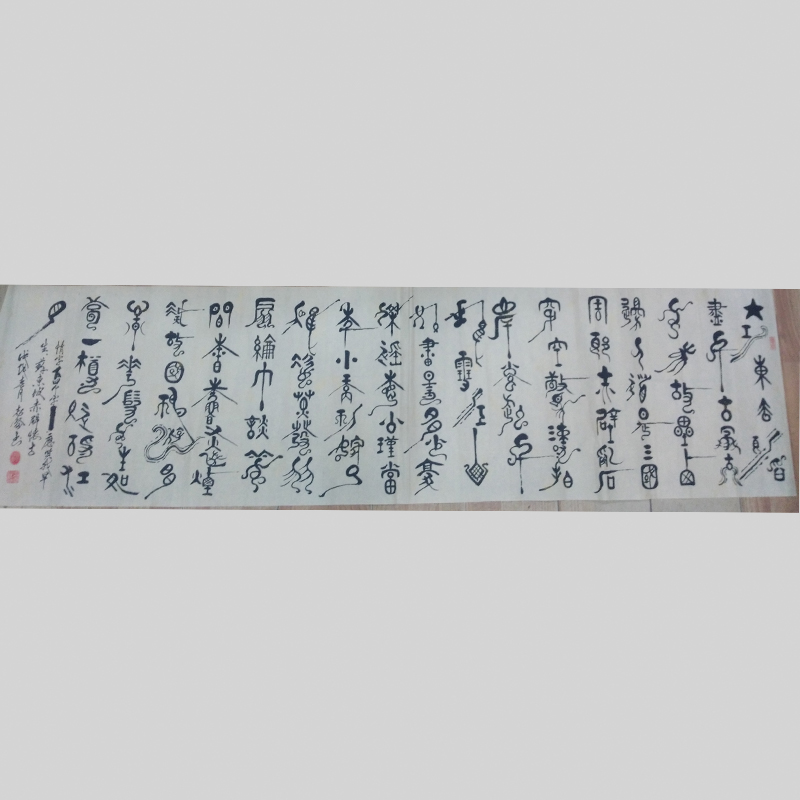 大江東去浪淘
盡千古風流
人物故壘西
邊人道是三國
周郎赤壁亂石
穿空驚濤拍
岸卷起千
堆雪江山
如畫一時多少豪
傑遙想公瑾當
年小喬初嫁了
雄姿英發羽
扇綸巾談笑
間檣櫓灰飛煙
滅故國神遊多
華髮人生如
夢一樽還酹江
月
情字 應笑我早
生 蘇東坡赤壁懷古